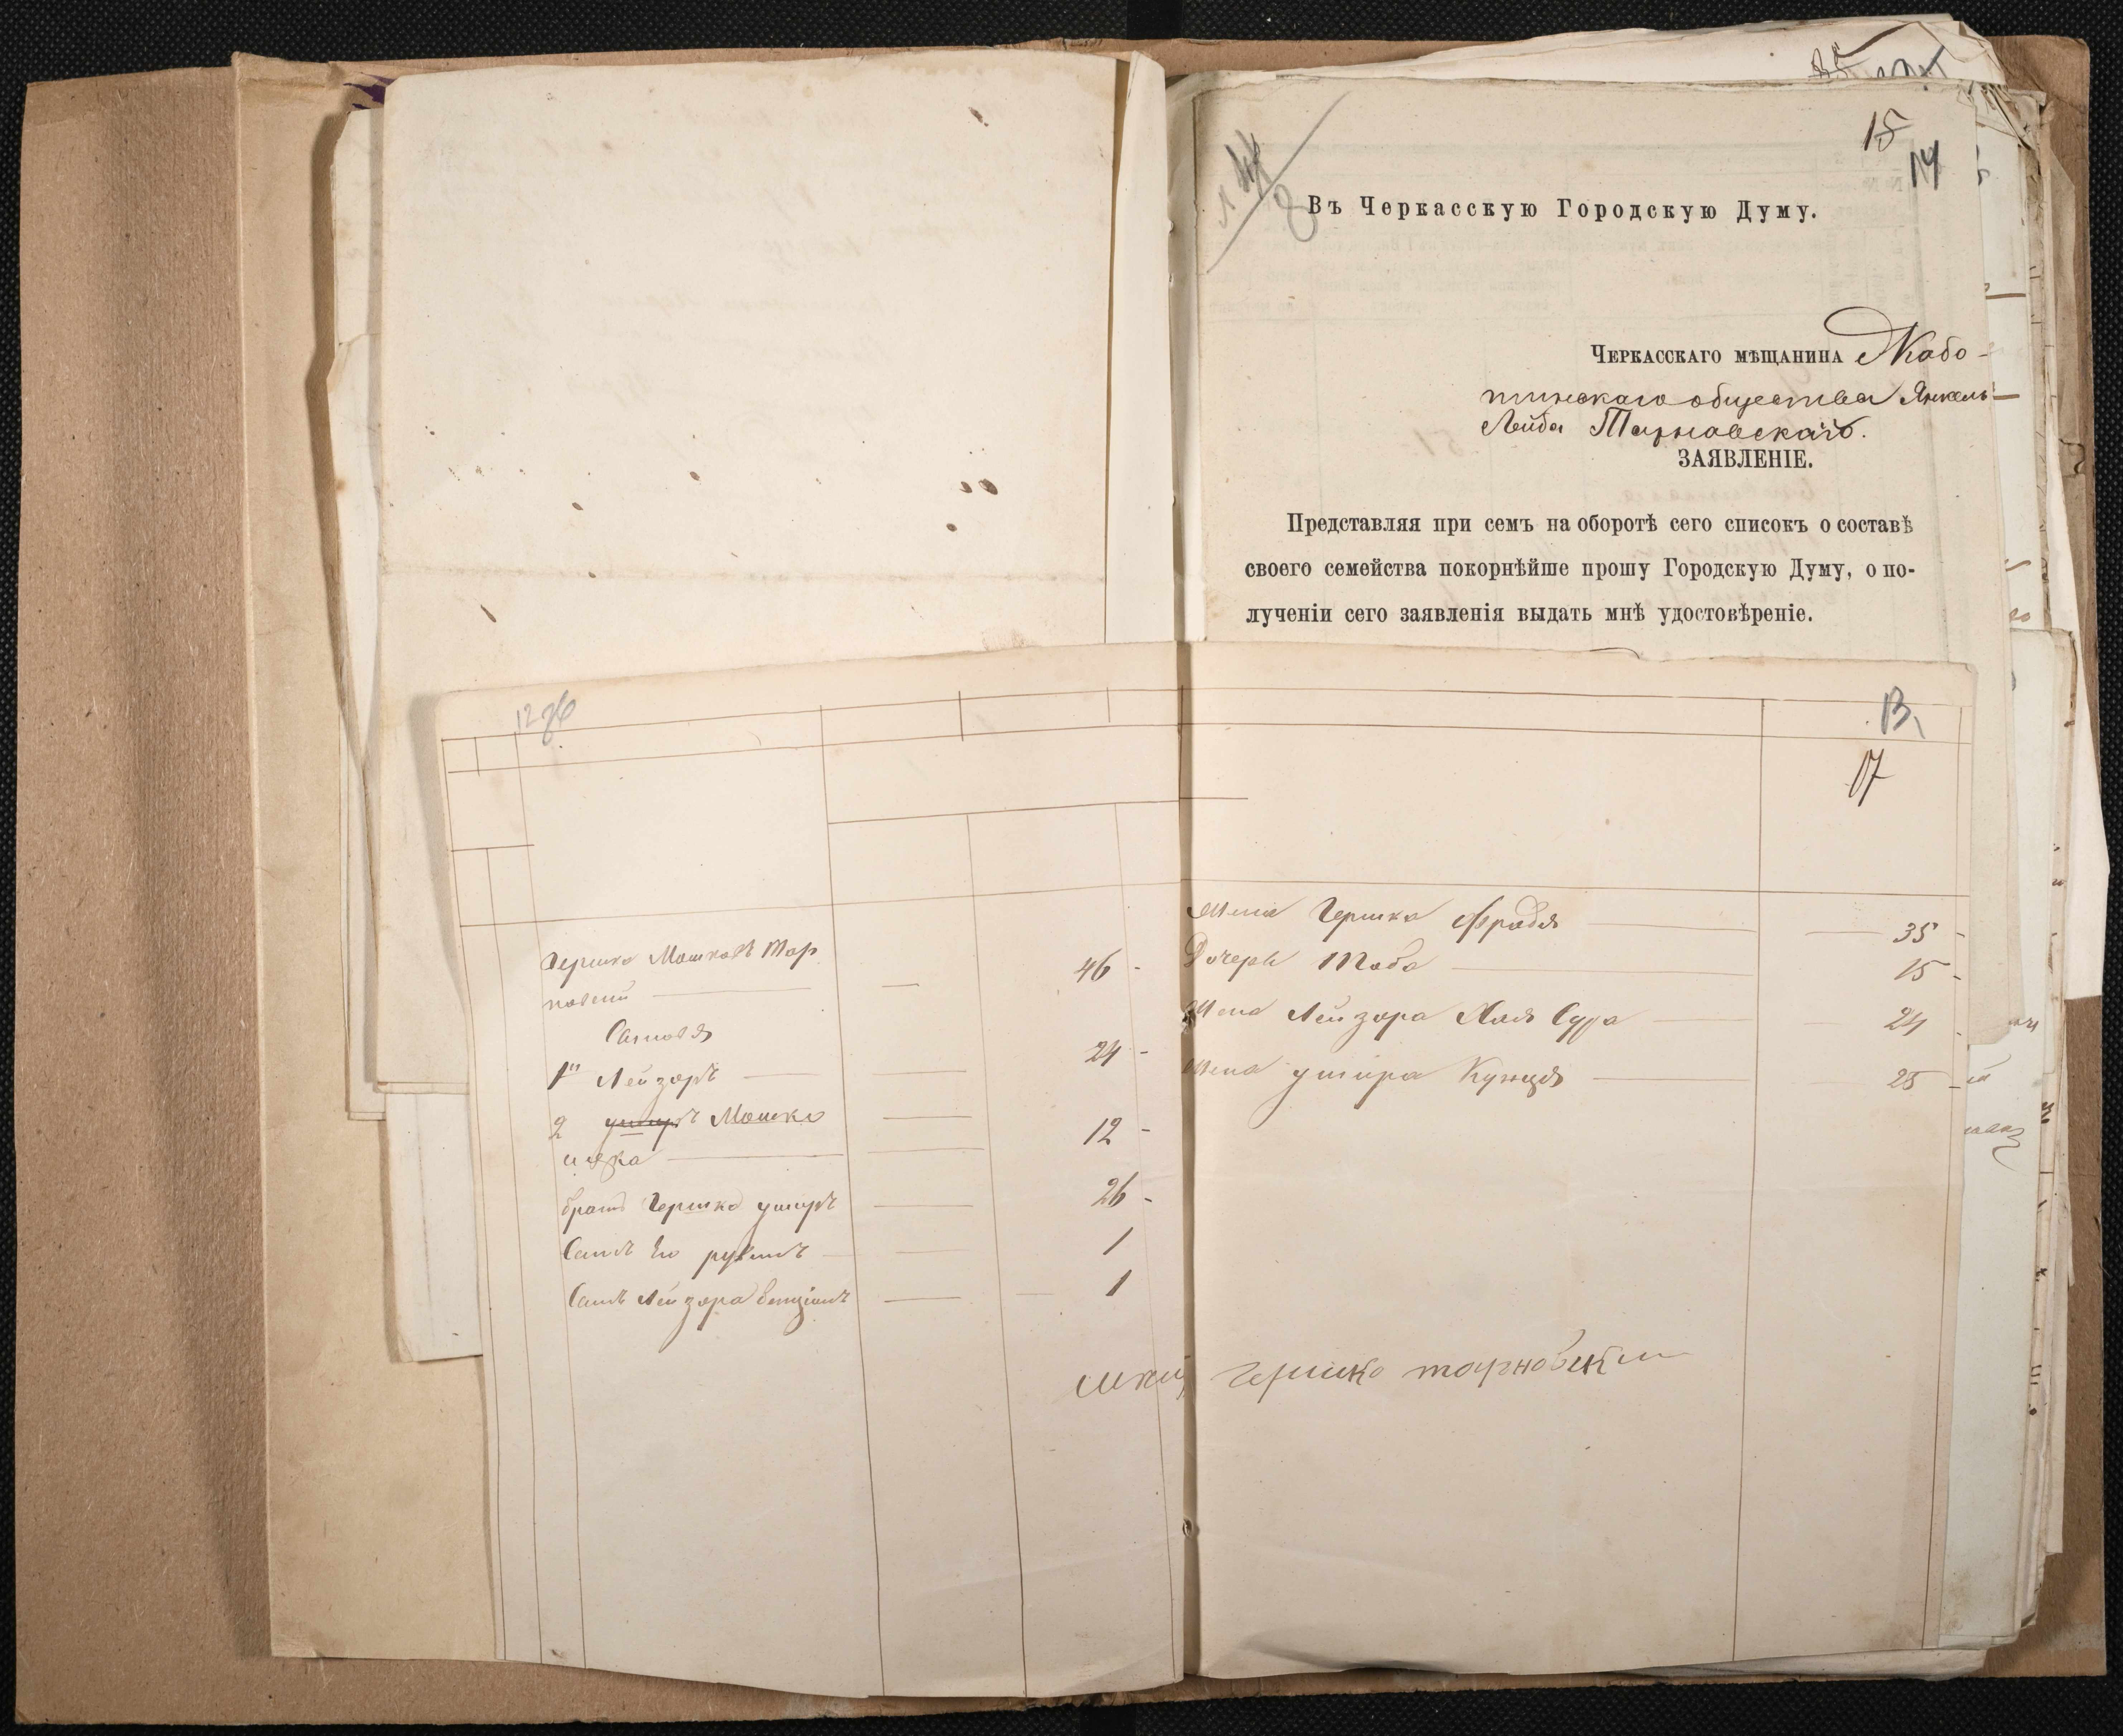 15
14
Въ Черкасскую Городскую Думу.
Черкасскаго мѣщанина Жабо-
тинскаго общества Янкель-
Лейба Тарновскаго.
ЗАЯВЛЕНІЕ.
Представляя при семъ на оборотѣ сего списокъ о составѣ
своего семейства покорнѣйше прошу Городскую Думу, о по-
лученіи сего заявленія выдать мнѣ удостовѣреніе.
13
17
Гершко Мошковъ Тар
новскій 46
Сыновя
1й Лейзоръ 24
2 Мошко
12
братъ Гершка Ушеръ 26
Сынъ Его 1
Сынъ Лейзора Бенціонъ 1
Жена Гершка Фрадя 35
Дочерь Тоба 15
Жена Лейзора Хая Сура 24
Жена Ушера Кунця 25
Гершко Тарновски